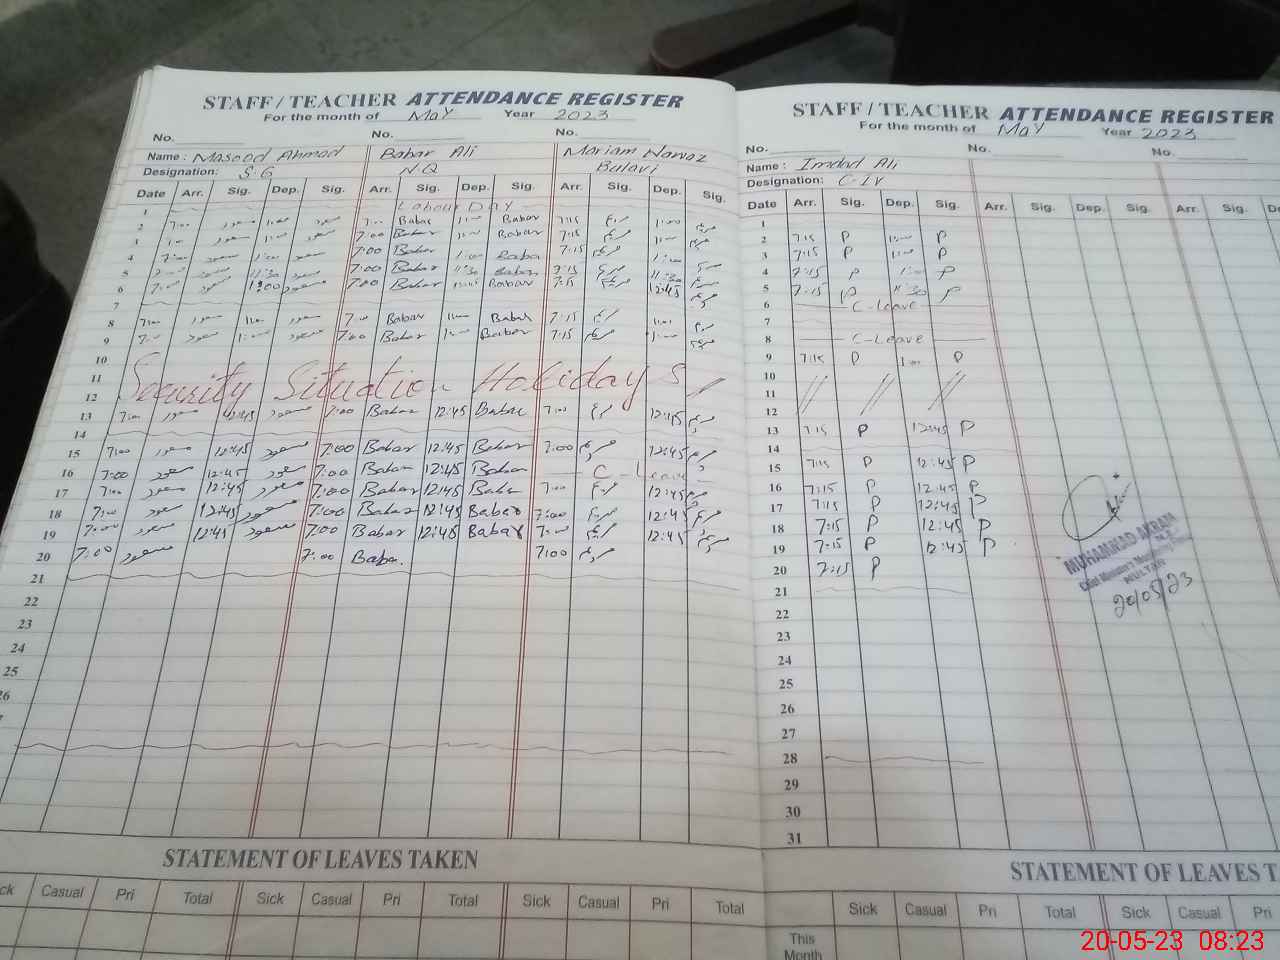 STAFF / TEACHER ATTENDANCE REGISTER
For the month of May Year 2023
No. No. No.
Name : Masood Ahmad Babar Ali Mariam Nawaz
Designation: S G N Q
Date Arr. Sig. Dep. Sig. Arr. Sig. Dep. Sig. Arr. Sig. Dep. Sig.
1 Labour Day
2 7:00 مسعود 1:00 مسعود 7:00 Babar 1:00 Babar 7:15 مریم 1:00 مریم
3 مسعود 1:00 مسعود 7:00 Babar 1:00 Babar 7:15 مریم 1:00 مریم
4 7:00 مسعود 1:00 مسعود 7:00 Babar 1:00 Baba 7:15 مریم 1:00 مریم
5 7:00 مسعود 11:30 مسعود 7:00 Babar 11:30 Babar 7:15 مریم 11:30 مریم
6 7:00 مسعود 1:00 مسعود 7:00 Babar Babar 7:15 مریم 12:45 مریم
7
8 7:00 مسعود 1:00 مسعود 7:00 Babar 1:00 Babar 7:15 مریم 1:00 مریم
9 7:00 مسعود 1:00 مسعود 7:00 Babar 1:00 Babar 7:15 مریم 1:00 مریم
10
11 Security Situation Holidays
12
13 7:00 مسعود 12:45 مسعود 7:00 Babar 12:45 Babar 7:00 مریم 12:45 مریم
14
15 7:00 مسعود 12:45 مسعود 7:00 Babar 12:45 Babar 7:00 مریم 12:45 مریم
16 7:00 مسعود 12:45 مسعود 7:00 Babar 12:45 Babar C-Leave
17 7:00 مسعود 12:45 مسعود 7:00 Babar 12:45 Baba 7:00 مریم 12:45 مریم
18 7:00 مسعود 12:45 مسعود 7:00 Babar 12:45 Babar 7:00 مریم 12:45 مریم
19 7:00 مسعود 12:45 مسعود 7:00 Babar 12:45 Babar 7:00 مریم 12:45 مریم
20 7:00 مسعود 7:00 Babar 7:00 مریم
21
22
23
24
25
STATEMENT OF LEAVES TAKEN
Casual Pri Total Sick Casual Pri Total Sick Casual Pri Total
STAFF / TEACHER ATTENDANCE REGISTER
For the month of May Year 2023
No. No. No.
Name : Imdad Ali
Designation: C-IV
Date Arr. Sig. Dep. Sig. Arr. Sig. Dep. Sig. Arr. Sig.
1
2 7:15 P 1:00 P
3 7:15 P 1:00 P
4 7:15 P 1:00 P
5 7:15 P 11:30 P
6 C-Leave
7
8 C-Leave
9 7:15 P 1:00 P
10
11 // // //
12
13 7:15 P 12:45 P
14
15 7:15 P 12:45 P
16 7:15 P 12:45 P
17 7:15 P 12:45 P
18 7:15 P 12:45 P
19 7:15 P 12:45 P
20 7:15 P
21
22
23
24
25
26
27
28
29
30
31
MUHAMMAD AKRAM
MULTAN
20/05/23
STATEMENT OF LEAVES
Sick Casual Pri Total Sick Casual Pri
This
Month
20-05-23 08:23